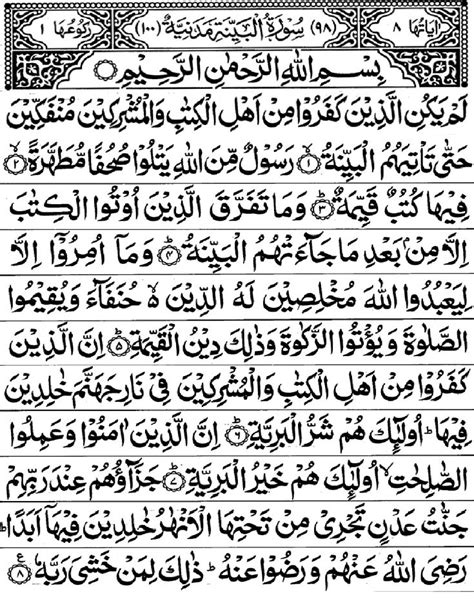 اٰیَاتُهَا ۸ (۹۸) سُوْرَةُ الْبَیِّنَةِ مَدَنِیَّةٌ (۱۰۰) رُكُوْعُهَا ۱
بِسْمِ اللّٰهِ الرَّحْمٰنِ الرَّحِیْمِ
لَمْ یَكُنِ الَّذِیْنَ كَفَرُوْا مِنْ اَهْلِ الْكِتٰبِ وَالْمُشْرِكِیْنَ مُنْفَكِّیْنَ
حَتّٰی تَاْتِیَهُمُ الْبَیِّنَةُ ۙ۱ رَسُوْلٌ مِّنَ اللّٰهِ یَتْلُوْا صُحُفًا مُّطَهَّرَةً ۙ۲
فِیْهَا كُتُبٌ قَیِّمَةٌ ؕ۳ وَمَا تَفَرَّقَ الَّذِیْنَ اُوْتُوا الْكِتٰبَ
اِلَّا مِنْۢ بَعْدِ مَا جَآءَتْهُمُ الْبَیِّنَةُ ؕ۴ وَمَاۤ اُمِرُوْۤا اِلَّا
لِیَعْبُدُوا اللّٰهَ مُخْلِصِیْنَ لَهُ الدِّیْنَ ە حُنَفَآءَ وَیُقِیْمُوا
الصَّلٰوةَ وَیُؤْتُوا الزَّكٰوةَ وَذٰلِكَ دِیْنُ الْقَیِّمَةِ ؕ۵ اِنَّ الَّذِیْنَ
كَفَرُوْا مِنْ اَهْلِ الْكِتٰبِ وَالْمُشْرِكِیْنَ فِیْ نَارِ جَهَنَّمَ خٰلِدِیْنَ
فِیْهَا ؕ اُولٰٓئِكَ هُمْ شَرُّ الْبَرِیَّةِ ؕ۶ اِنَّ الَّذِیْنَ اٰمَنُوْا وَعَمِلُوا
الصّٰلِحٰتِ ۙ اُولٰٓئِكَ هُمْ خَیْرُ الْبَرِیَّةِ ؕ۷ جَزَآؤُهُمْ عِنْدَ رَبِّهِمْ
جَنّٰتُ عَدْنٍ تَجْرِیْ مِنْ تَحْتِهَا الْاَنْهٰرُ خٰلِدِیْنَ فِیْهَاۤ اَبَدًا ؕ
رَضِیَ اللّٰهُ عَنْهُمْ وَرَضُوْا عَنْهُ ؕ ذٰلِكَ لِمَنْ خَشِیَ رَبَّهٗ ۸ ع